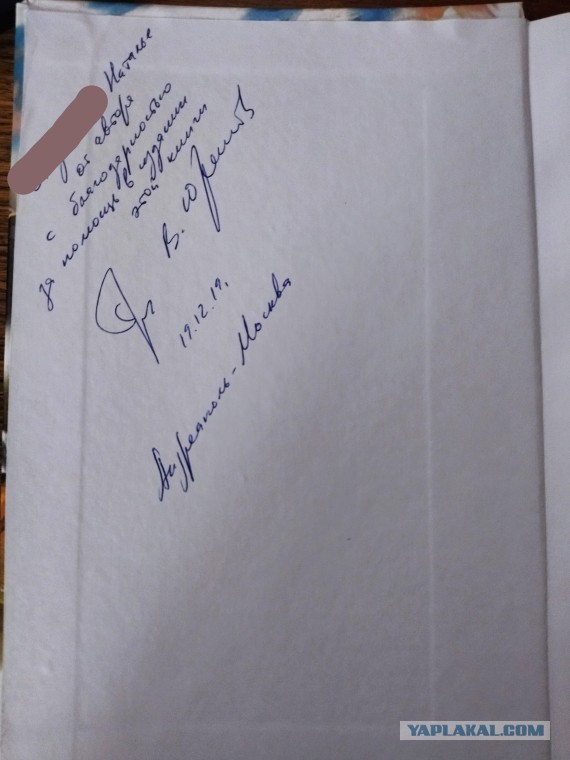 Наталье
от автора
с благодарностью
за помощь в издании
этой книги
В.
19.12.19.
Андреаполь-Москва
YAPLAKAL.COM